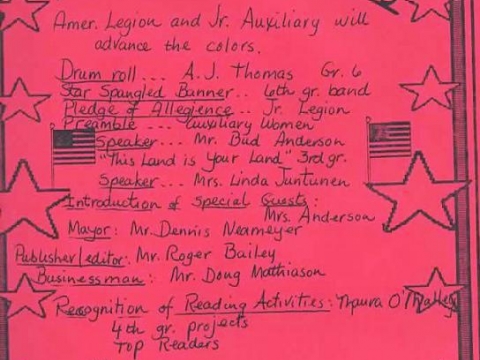 Amer. Legion and Jr. Auxiliary will
advance the colors.
Drum roll ... A.J. Thomas Gr. 6
Star Spangled Banner .. 6th gr. band
Pledge of Allegience .. Jr. Legion
Preamble --- auxiliary Women
Speaker ... Mr. Bud Anderson
"This Land is Your Land" 3rd gr.
Speaker ... Mrs. Linda Juntunen
Introduction of Special Guests:
Mrs. Anderson
Mayor: Mr. Dennis Neameyer
Publisher/editor: Mr. Roger Bailey
Businessman: Mr. Doug Mathiason
Recognition of Reading Activities: O'Malley
4th gr. projects
Top Readers